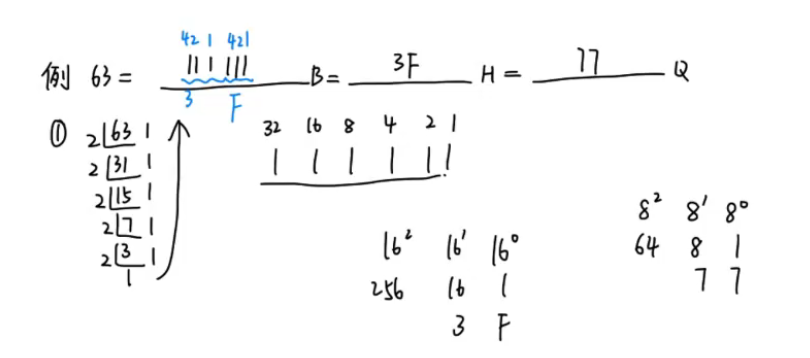 42 1 421
例 63 = 111 111 B = 3F H = 77 Q
3 F
① 2 63 1
2 31 1
2 15 1
2 7 1
2 3 1
1
32 16 8 4 2 1
1 1 1 1 1 1
16² 16¹ 16⁰
256 16 1
3 F
8² 8¹ 8⁰
64 8 1
7 7